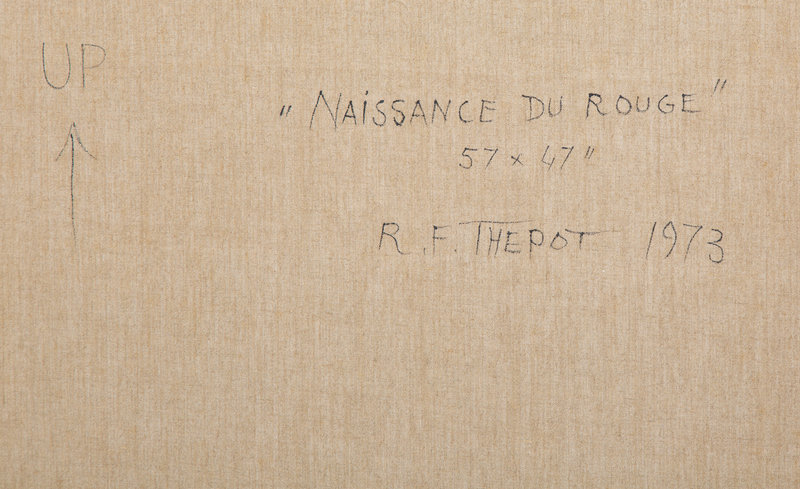 UP
" NAISSANCE DU ROUGE "
57 x 47 "
R.F. THEPOT 1973